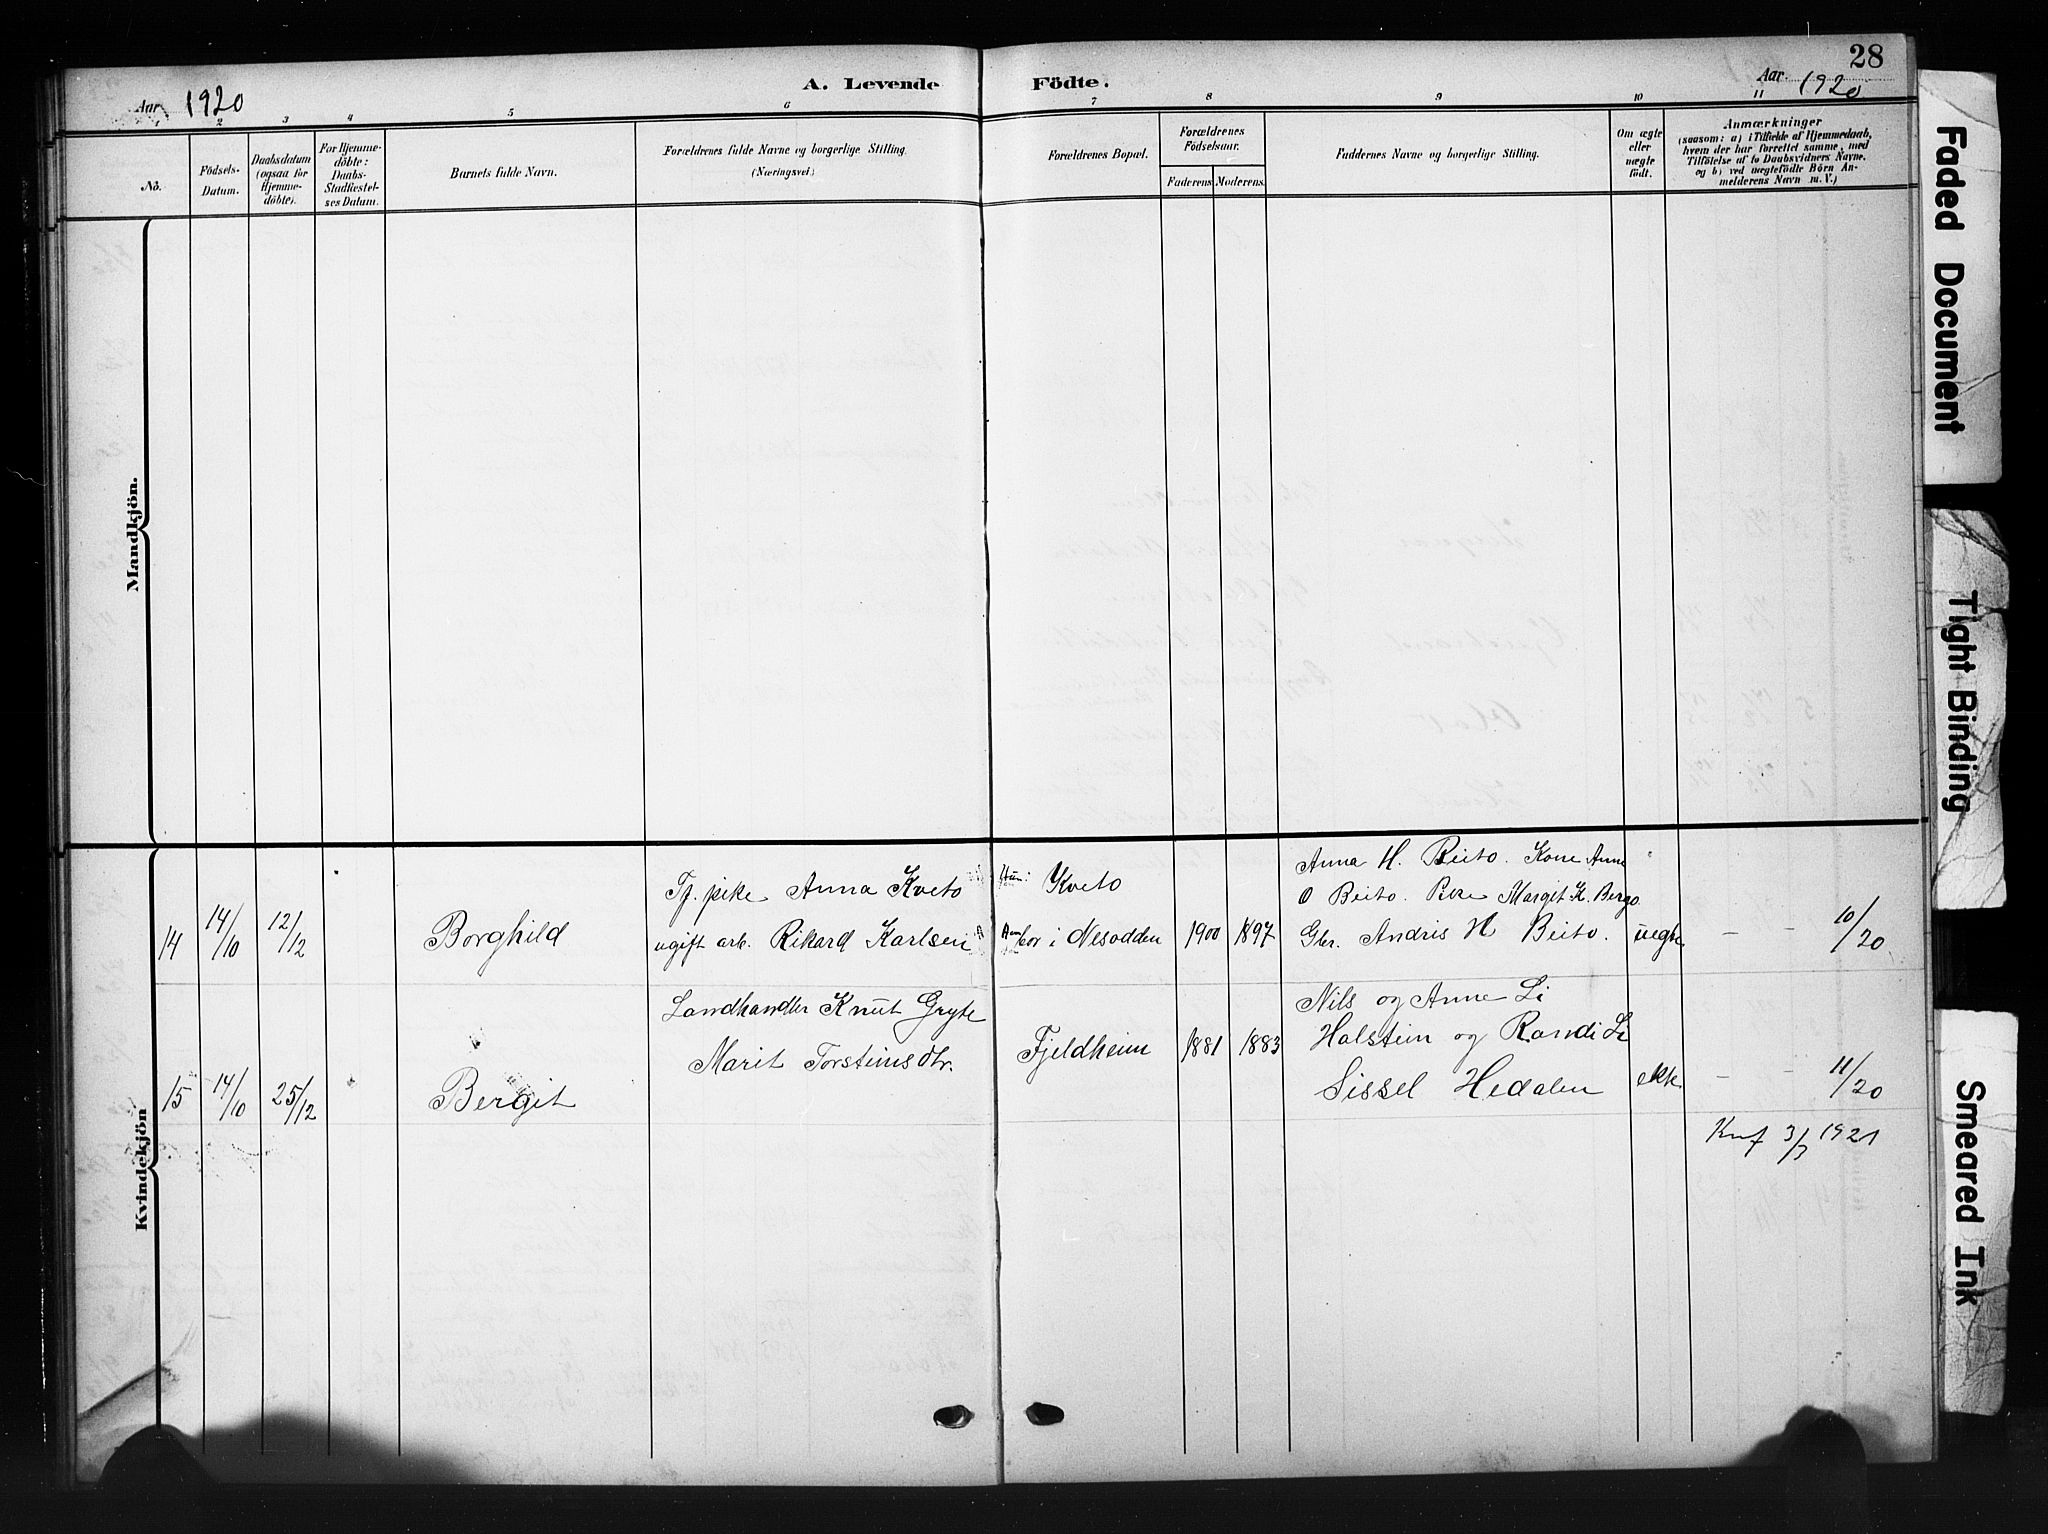 28
A. Levende Födte.
Aar 1920
Aar. 1920
1 2 3 4 5 6 7 8 9 10 11
No.
Födsels-
Datum.
Daabsdatum
(ogsaa for
Hjemme-
döbte).
For Hjemme-
döbte:
Daabs-
Stadfæstel-
ses Datum.
Barnets fulde Navn.
Forældrenes fulde Navne og borgerlige Stilling.
(Næringsvei)
Forældrenes Bopæl.
Forældrenes
Födselsaar.
Faderens. Moderens.
Faddernes Navne og borgerlige Stilling.
Om ægte
eller
uægte
födt.
Anmærkninger
(saasom: a) i Tilfælde af Hjemmedaab,
hvem der har forrettet samme, med
Tilföielse af to Daabsvidners Navne.
og b) ved uægtefödte Börn An-
melderens Navn m. V.)
Mandkjön.
Kvindekjön
14
14/10
12/12
Borghild
Tj. pike Anna Kveto
ugift arb. Rikard Karlsen
Hun: Kveto
bor i Nesodden
1900
1897
Anna H. Beito. Kone Anne
O Beito. Pike Margit K. Bergo
Gbr. Andris H Beito.
uegte
- - 10/20
15
14/10
25/12
Bergit
Landhandler Knut Gryte
Marit Torsteinsdtr.
Fjeldheim
1881
1883
Nils og Anne Li
Halstein og Randi Li
Sissel Hedalen
ekte
- - 11/20
Knf 3/3 1921
Faded Document
Tight Binding
Smeared Ink